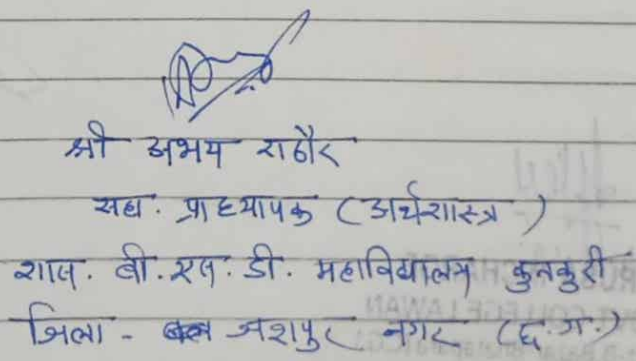 श्री अभय राठौर
सहा. प्राध्यापक (अर्थशास्त्र)
शास. बी. एस. डी. महाविद्यालय कुनकुरी
जिला - जशपुर नगर (छ. ग.)